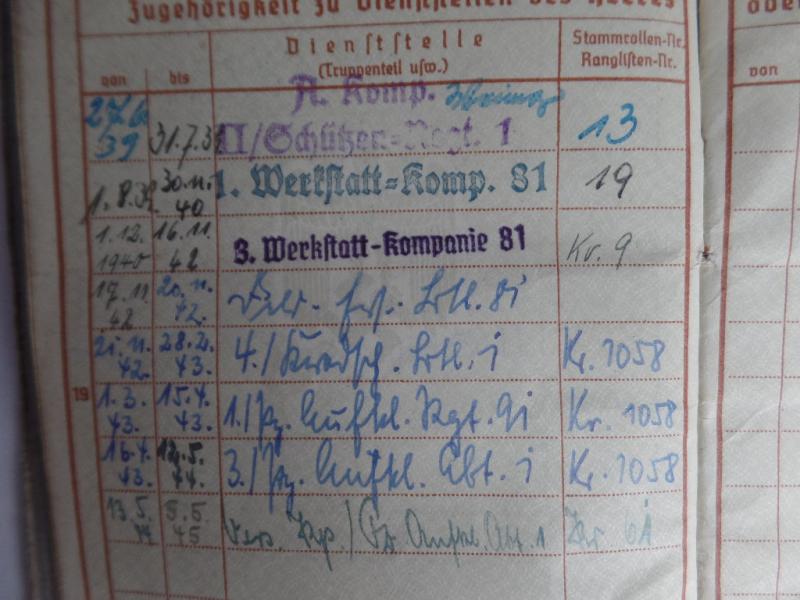 Zugehörigkeit zu Dienststellen des Heeres
von bis Dienststelle (Truppenteil usw.) Stammrollen-Nr. Ranglisten-Nr.
A. Komp.
27.6. 39 31.7.39 II/Schützen-Regt. 1 13
1.8.39. 30.11. 40 1. Werkstatt-Komp. 81 19
1.12. 1940 16.11. 42 3. Werkstatt-Kompanie 81 Kr. 9
17.11 42 20.11. 42. Feld- Ers.- Btl. 81
21.11. 42. 28.2. 43. 4./Kradsch. Btl. 1 Kr. 1058
19 1.3. 43. 15.4. 43. 1./Pz. Aufkl. Rgt. 91 Kr. 1058
16.4. 43. 12.5. 44. 3./Pz. Aufkl. Abt. 1 Kr. 1058
13.5. 44 5.5. 45 Vers. Kp./Pz Aufkl. Abt. 1 Kr
von